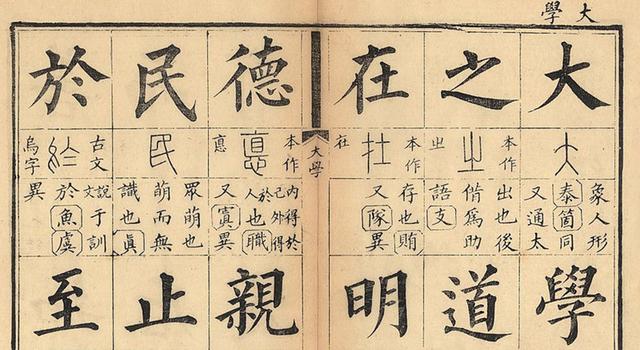 大學
大
象人形
泰箇同
又通太
學
之
本作
㞢
出也後
偕為助
語支
道
在
本作
在
存也賄
又隊異
明
大學
德
本作
悳
內得於
己外得
於人也職
又寘異
親
民
眾萌也
萌而無
識也眞
止
於
古文
烏字
說文于訓
於魚虞
異
至